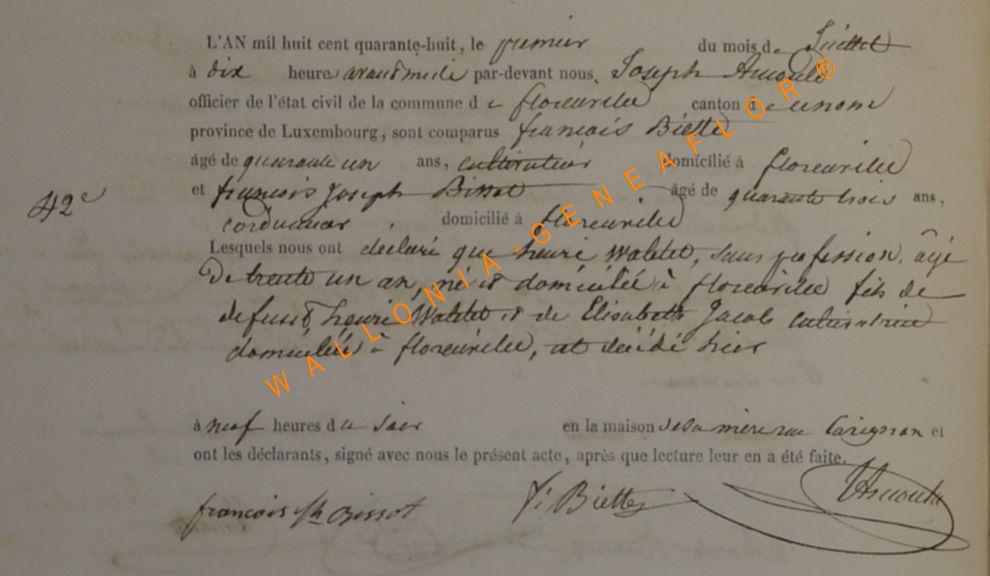 L'AN mil huit cent quarante-huit, le premier du mois de Juillet
à dix heures avant midi par-devant nous, Joseph Arnould
officier de l'état civil de la commune de florenville canton
province de Luxembourg, sont comparus françois Biette
âgé de quarante un ans, cultivateur domicilié à florenville
et françois joseph Bissot âgé de quarante trois ans,
42e
cordonnier domicilié à florenville
Lesquels nous ont déclaré que henri Watelet, sans profession, âgé
de trente un an, né et domicilié à florenville fils de
defunt henri Watelet & de Elisabeth Jacob cultivatrice
domiciliée à florenville, est décédé hier
à neuf heures du soir en la maison de sa mère rue Carignan et
ont les déclarants, signé avec nous le présent acte, après que lecture leur en a été faite.
françois Jh Bissot f: Biette Arnould
WALLONIA-GENEAFLOR®